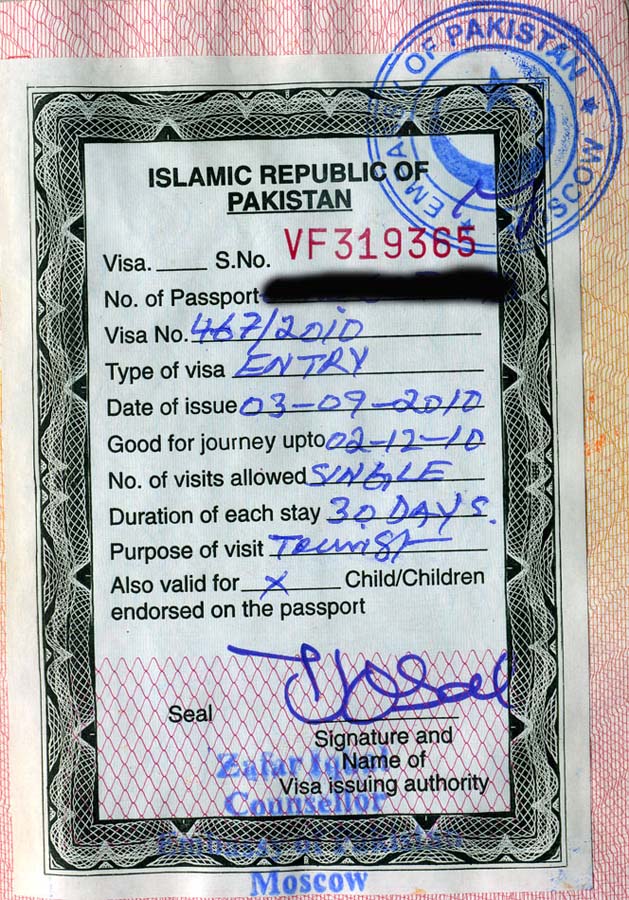 EMBASSY OF PAKISTAN
★ MOSCOW ★
ISLAMIC REPUBLIC OF
PAKISTAN
Visa. ____ S.No. VF319365
No. of Passport
Visa No. 467/2010
Type of visa ENTRY
Date of issue 03-09-2010
Good for journey upto 02-12-10
No. of visits allowed SINGLE
Duration of each stay 30 DAYS.
Purpose of visit Tourist
Also valid for X Child/Children
endorsed on the passport
Seal
Signature and
Name of
Visa issuing authority
Zafar Iqbal
Counsellor
Embassy of Pakistan
Moscow